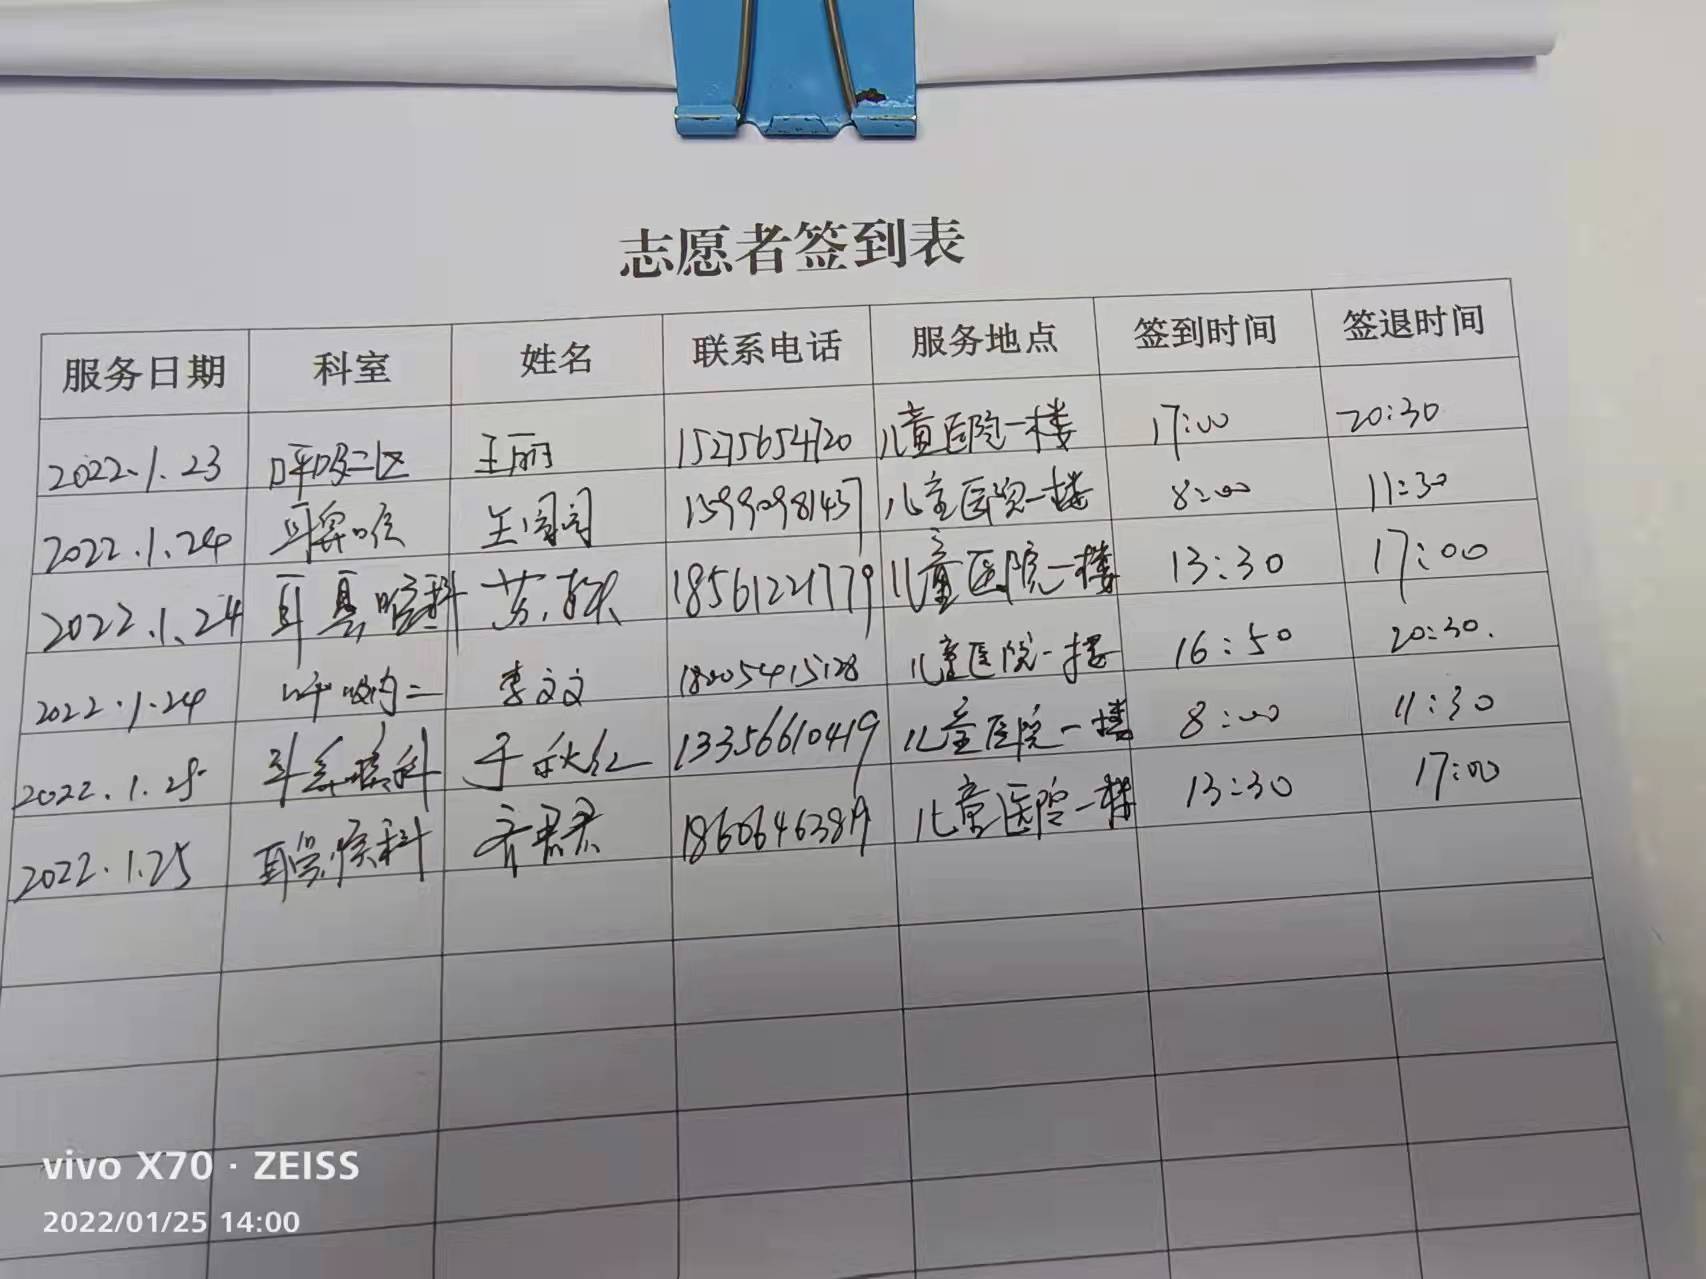 志愿者签到表
服务日期 科室 姓名 联系电话 服务地点 签到时间 签退时间
2022.1.23 呼吸二区 王丽 15275654720 儿童医院一楼 17:00 20:30
2022.1.24 耳鼻喉 王闺闺 139910981437 儿童医院一楼 8:00 11:30
2022.1.24 耳鼻喉科 18561221779 儿童医院一楼 13:30 17:00
2022.1.24 呼吸内二 李文文 18005415128 儿童医院一楼 16:50 20:30.
2022.1.25 耳鼻喉科 于秋红 13356610419 儿童医院一楼 8:00 11:30
2022.1.25 耳鼻喉科 齐君君 儿童医院一楼 13:30 17:00
vivo X70 · ZEISS
2022/01/25 14:00